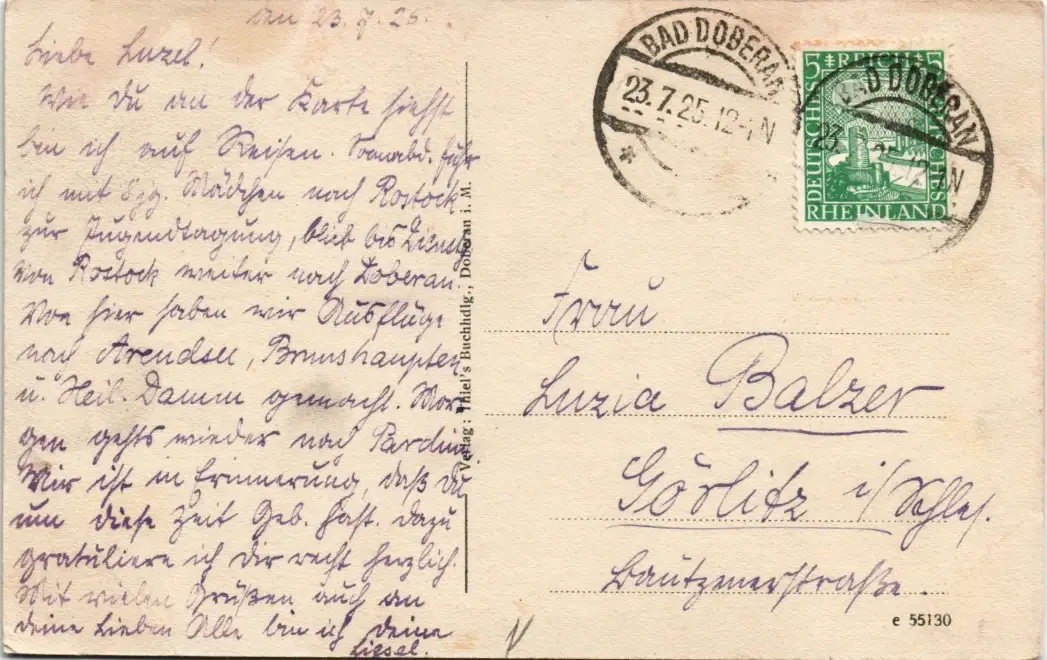 den 23.7.25.
Liebe Luzel!
Wie Du an der Karte siehst
bin ich auf Reisen. Sonnabd. fuhr
ich mit Mädchen nach Rostock
zur Jugendtagung, blieb bis Dienstg
Von Rostock weiter nach Doberan.
Von hier haben wir Ausflüge
nach Arendsee, Brunshaupten
u. Heil. Damm gemacht. Mor-
gen gehts wieder nach
Mir ist in Erinnerung, daß Du
um diese Zeit Geb. hast. Dazu
gratuliere ich Dir recht herzlich.
Mit vielen Grüßen auch an
deine Lieben Alle bin ich deine
Liesel.
Verlag: Thiel's Buchhdlg., Doberan i. M.
BAD DOBERAN
23.7.25.12-1N
DEUTSCHES REICH
5 5
RHEINLAND
BAD DOBERAN
23. 25.12-1N
Frau
Luzia Balzer
Görlitz i/Schles.
Bautznerstraße.
e 55130